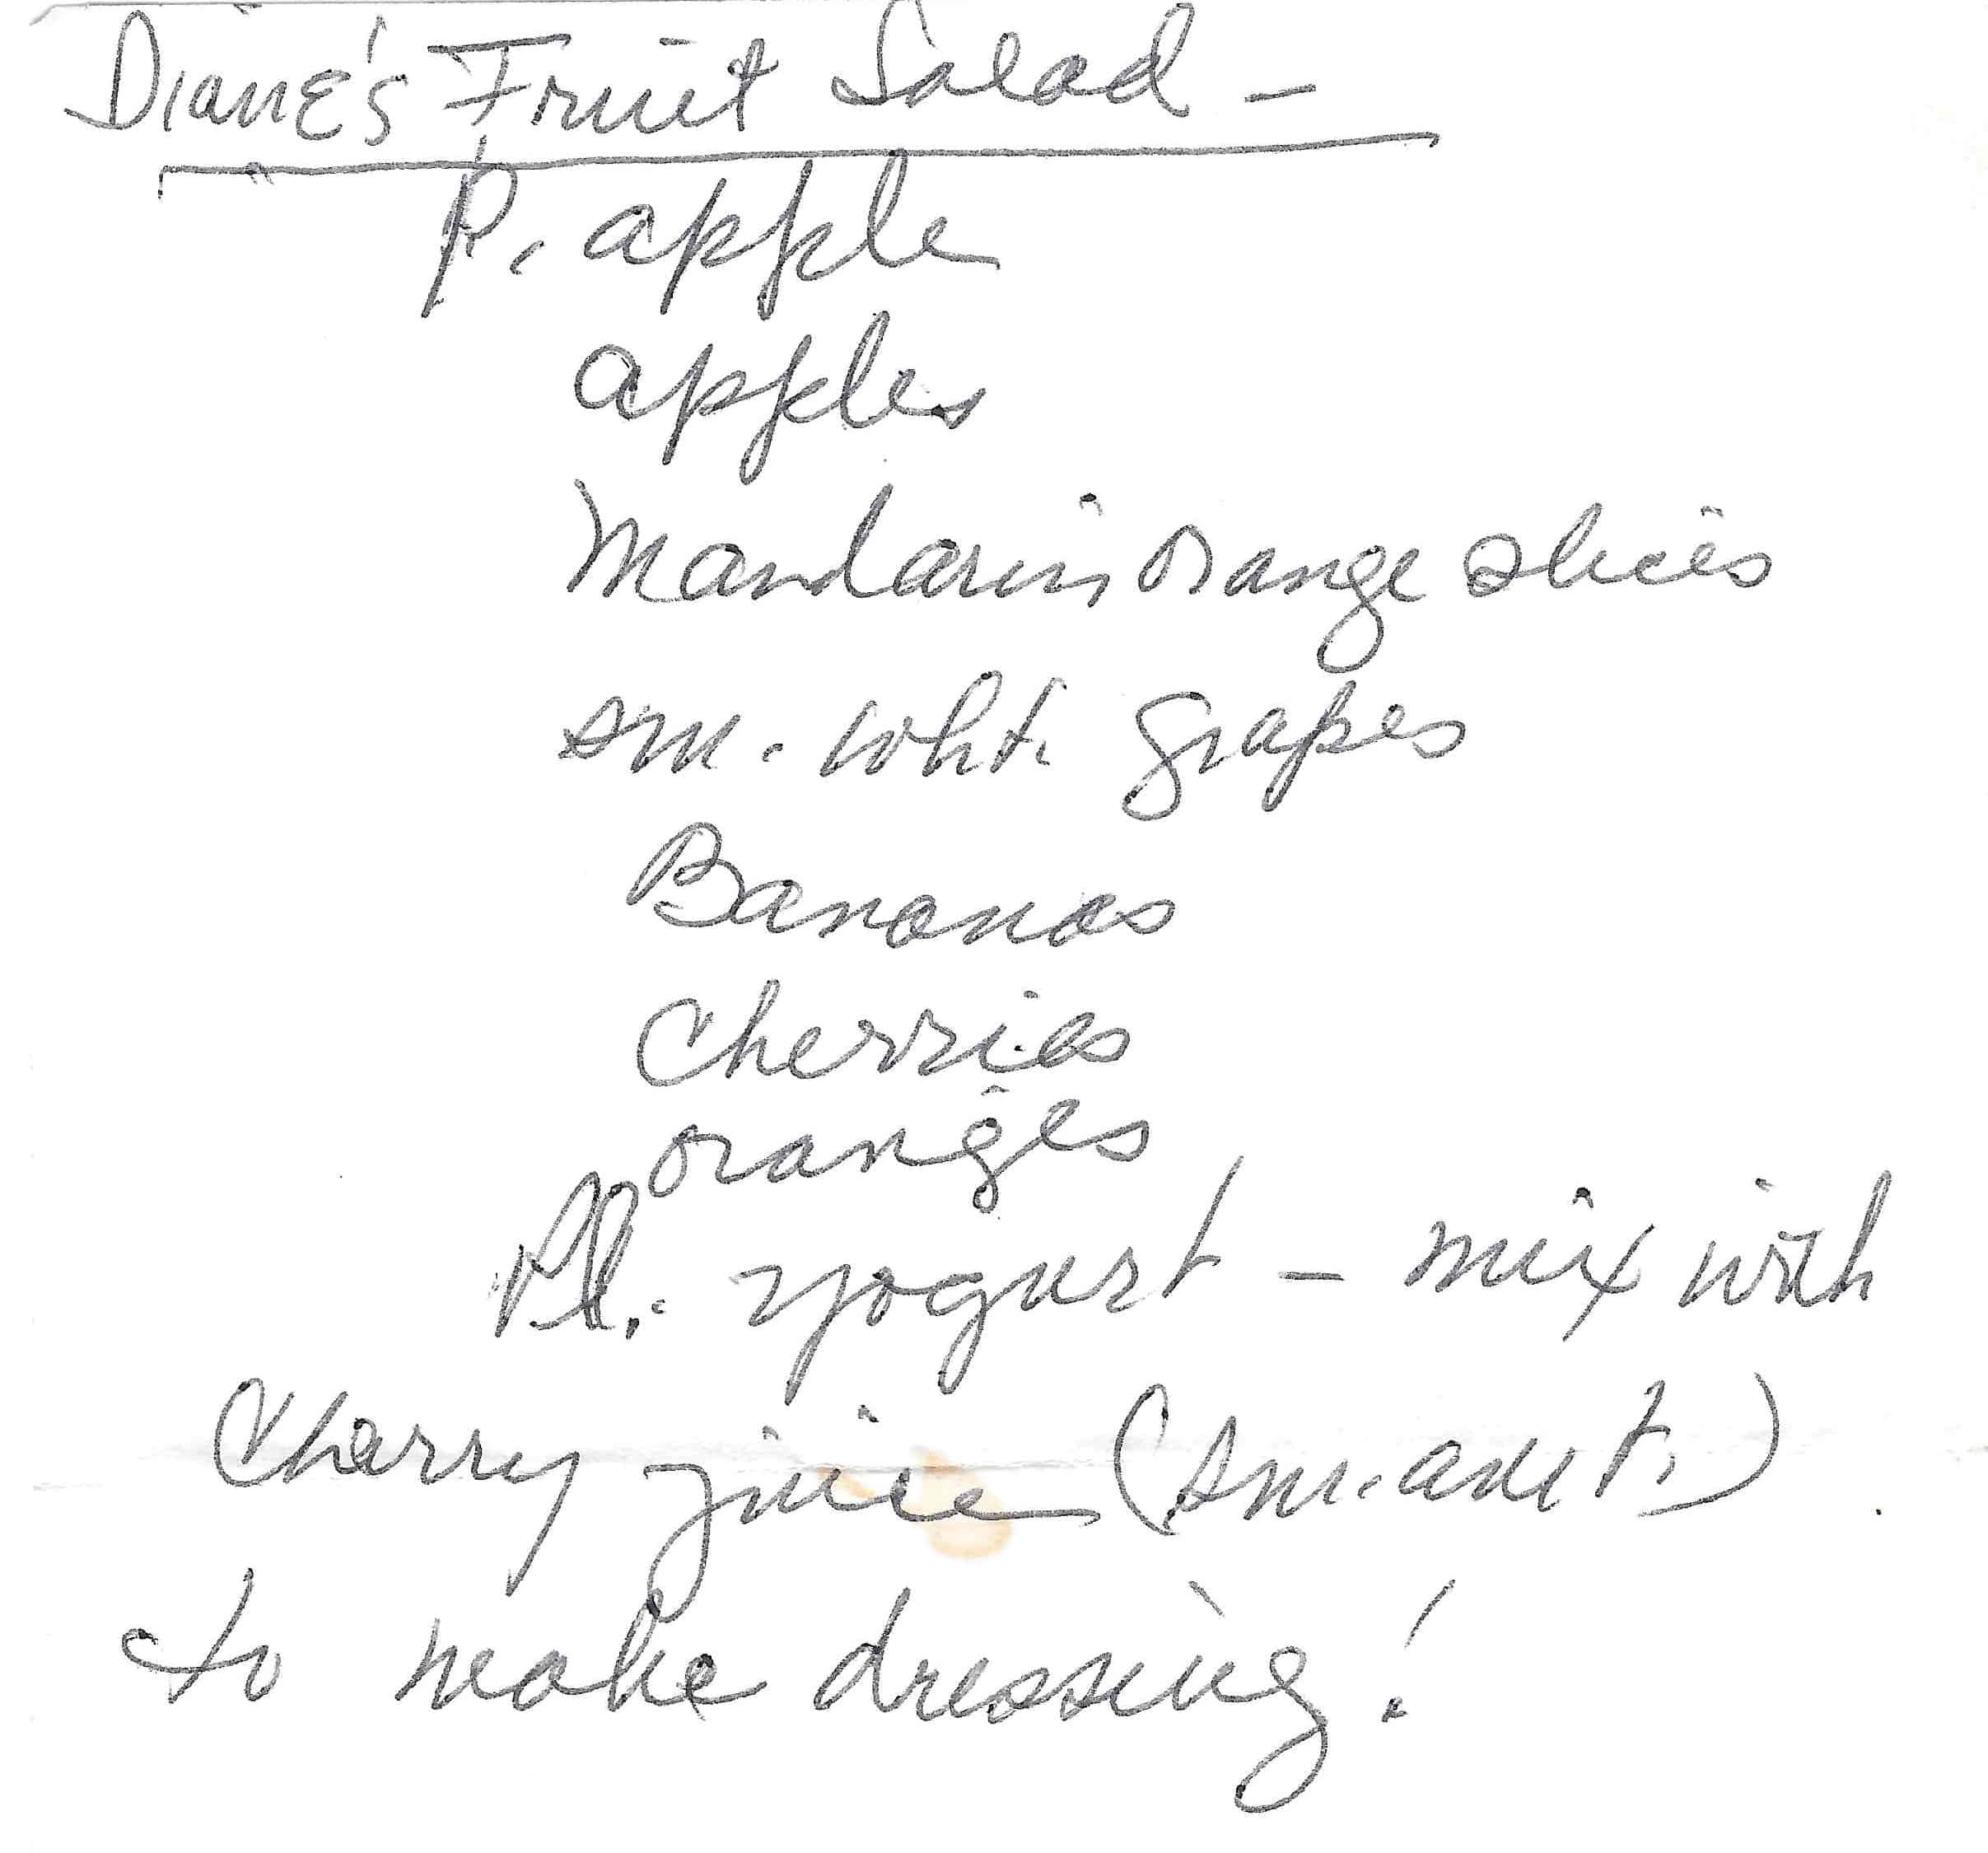 Diane's Fruit Salad -
P. apple
apples
Mandarin orange slices
sm. wht. grapes
Bananas
Cherries
oranges
Pl. yogurt - mix with
Charry juice (sm. amt.)
to make dressing!